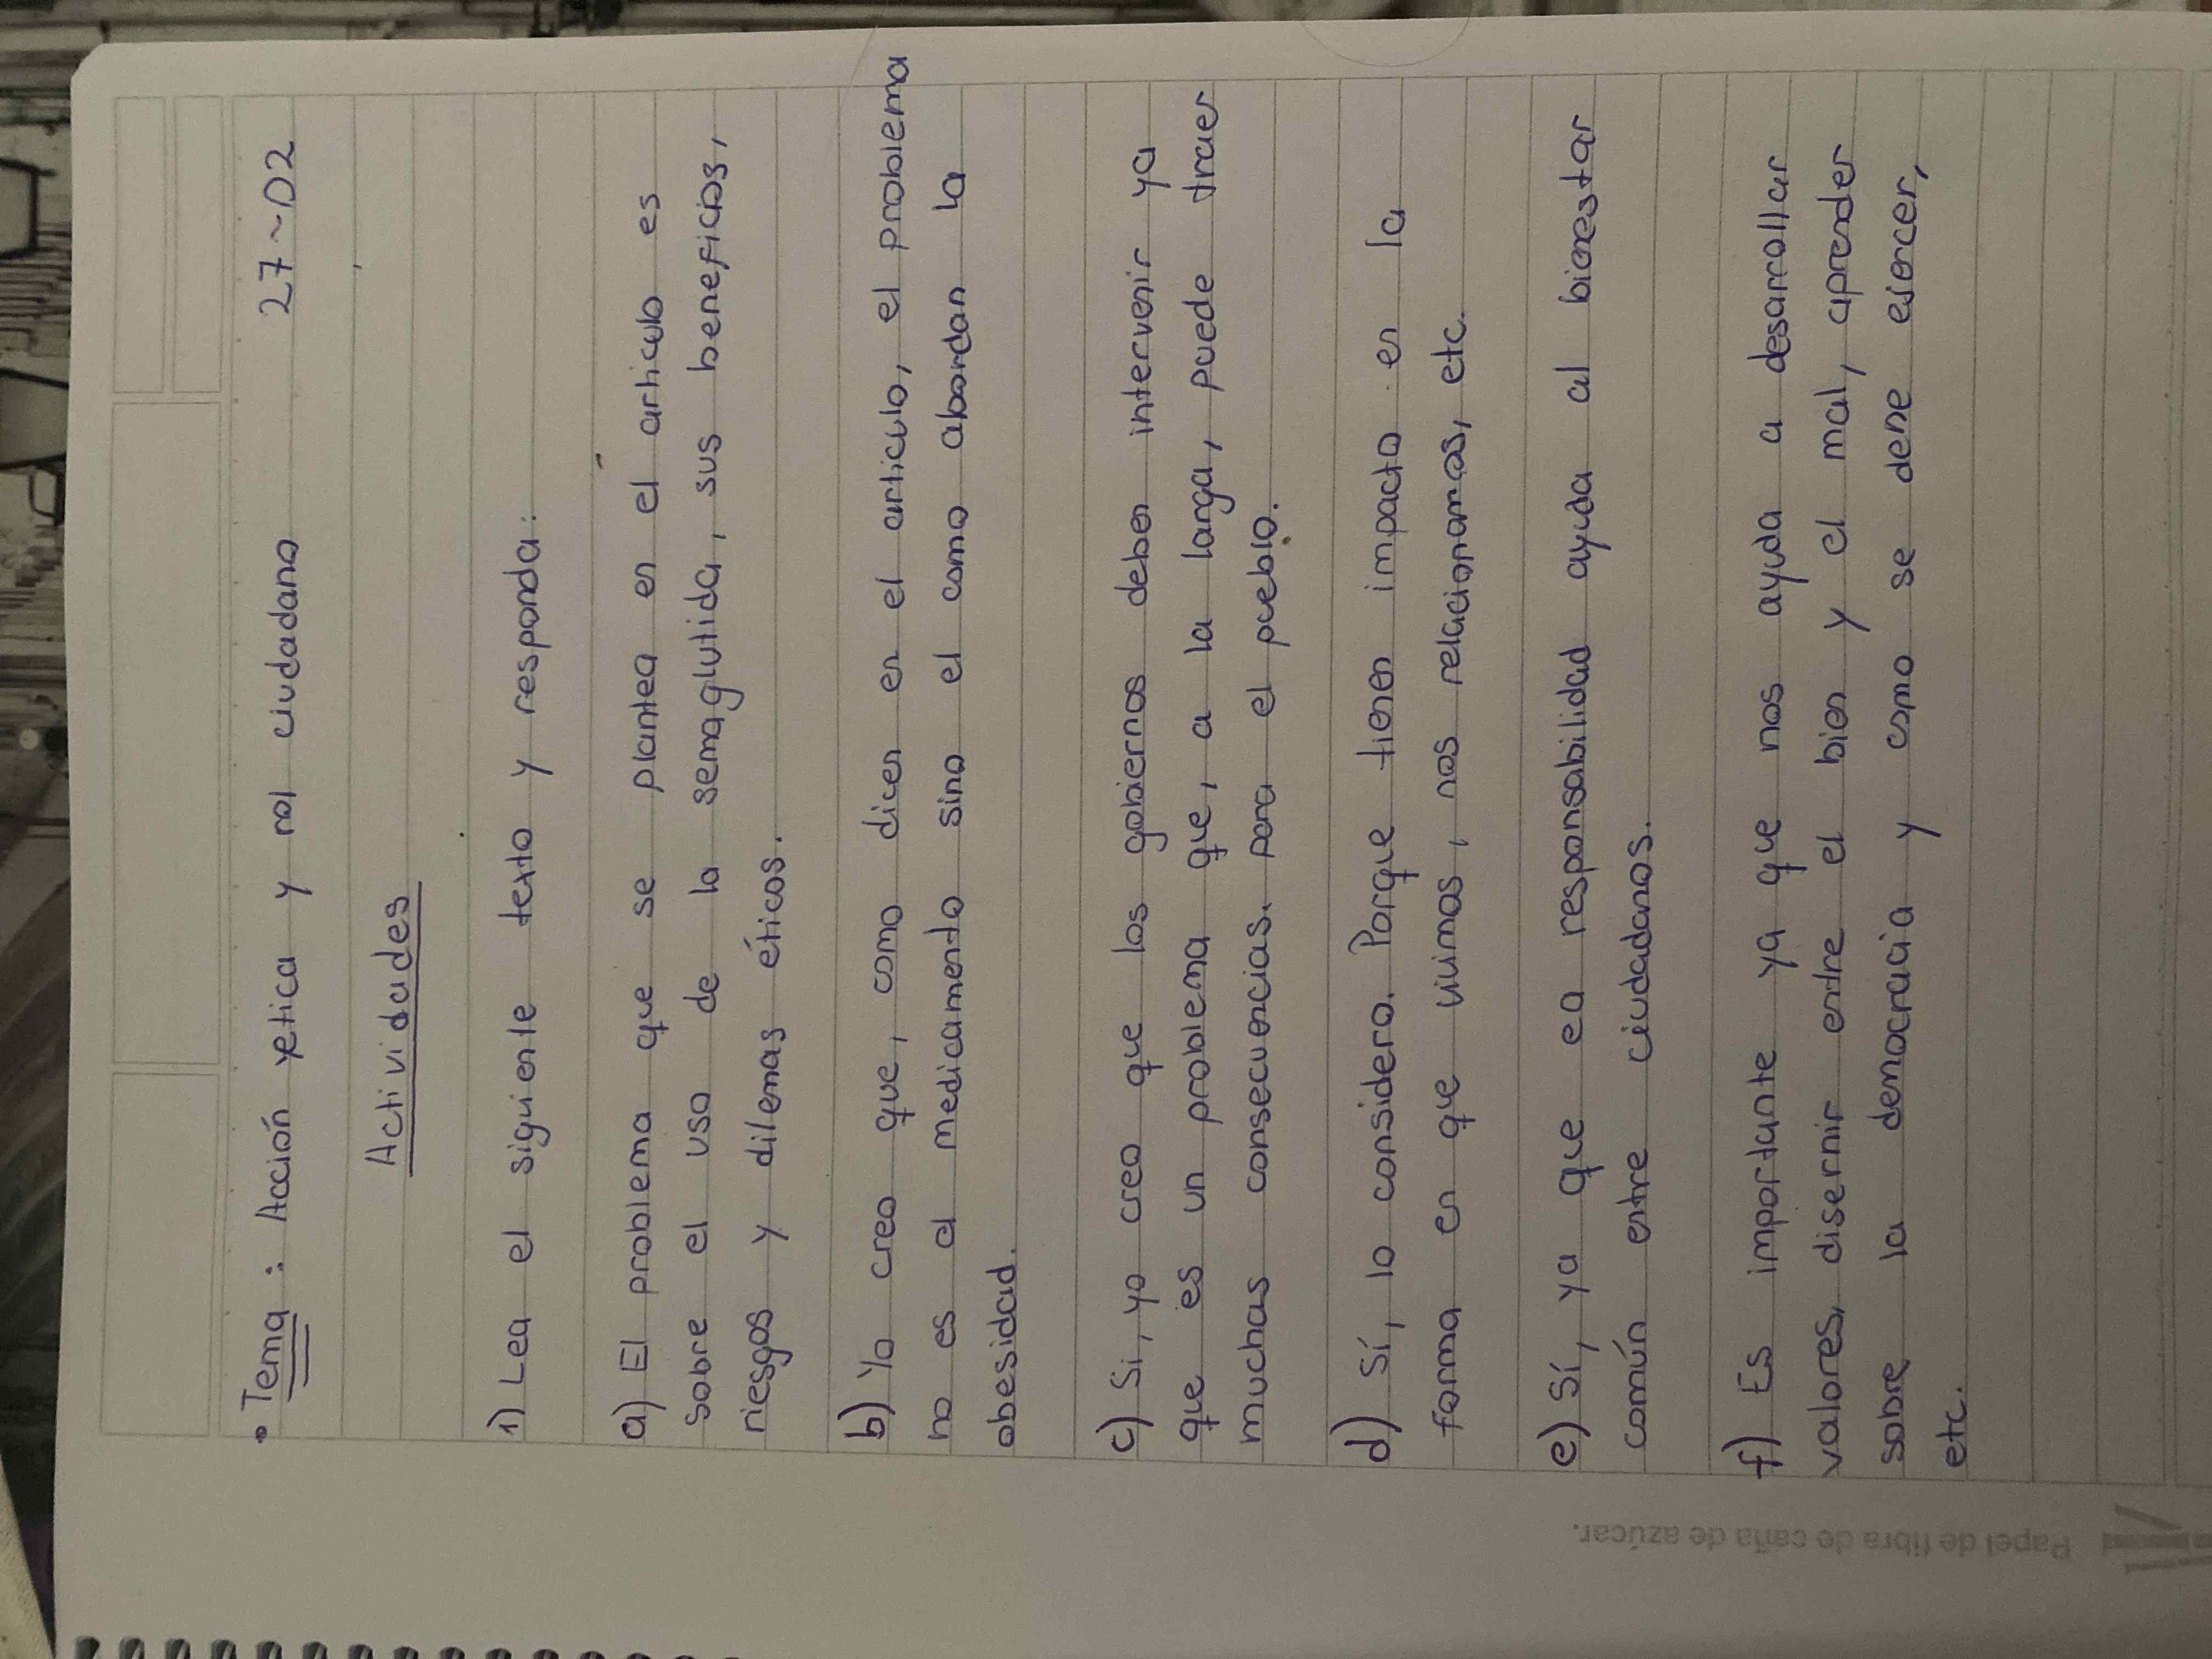 • Tema: Acción yetica y rol ciudadano 27~02
Actividades
1) Lea el siguiente texto y responda:
a) El problema que se plantea en el artículo es
sobre el uso de la semaglutida, sus beneficios,
riesgos y dilemas éticos.
b) Yo creo que, como dicen en el artículo, el problema
no es el medicamento sino el como abordan la
obesidad.
c) Si, yo creo que los gobiernos deben intervenir ya
que es un problema que, a la larga, puede traer
muchas consecuencias para el pueblo.
d) Sí, lo considero. Porque tienen impacto en la
forma en que vivimos, nos relacionamos, etc.
e) Sí, ya que ea responsabilidad ayuda al bienestar
común entre ciudadanos.
f) Es importante ya que nos ayuda a desarrollar
valores, disernir entre el bien y el mal, aprender
sobre la democracia y como se debe ejercer,
etc.
Papel de fibra de caña de azúcar.